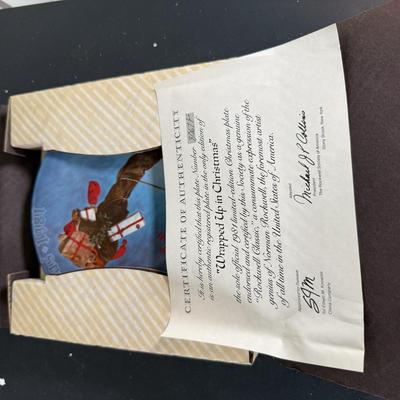 CERTIFICATE OF AUTHENTICITY
It is hereby certified that this plate Number
is an authentic registered plate in the only edition of
"Wrapped Up in Christmas"
the sole official 1981 limited-edition Christmas plate
endorsed and certified by this Society as a genuine
"Rockwell Classic," a consummate expression of the
genius of Norman Rockwell, the foremost artist
of all time in the United States of America.
Attested
Michael J P Collins
President
The Rockwell Society of America
Stony Brook, New York
China Company